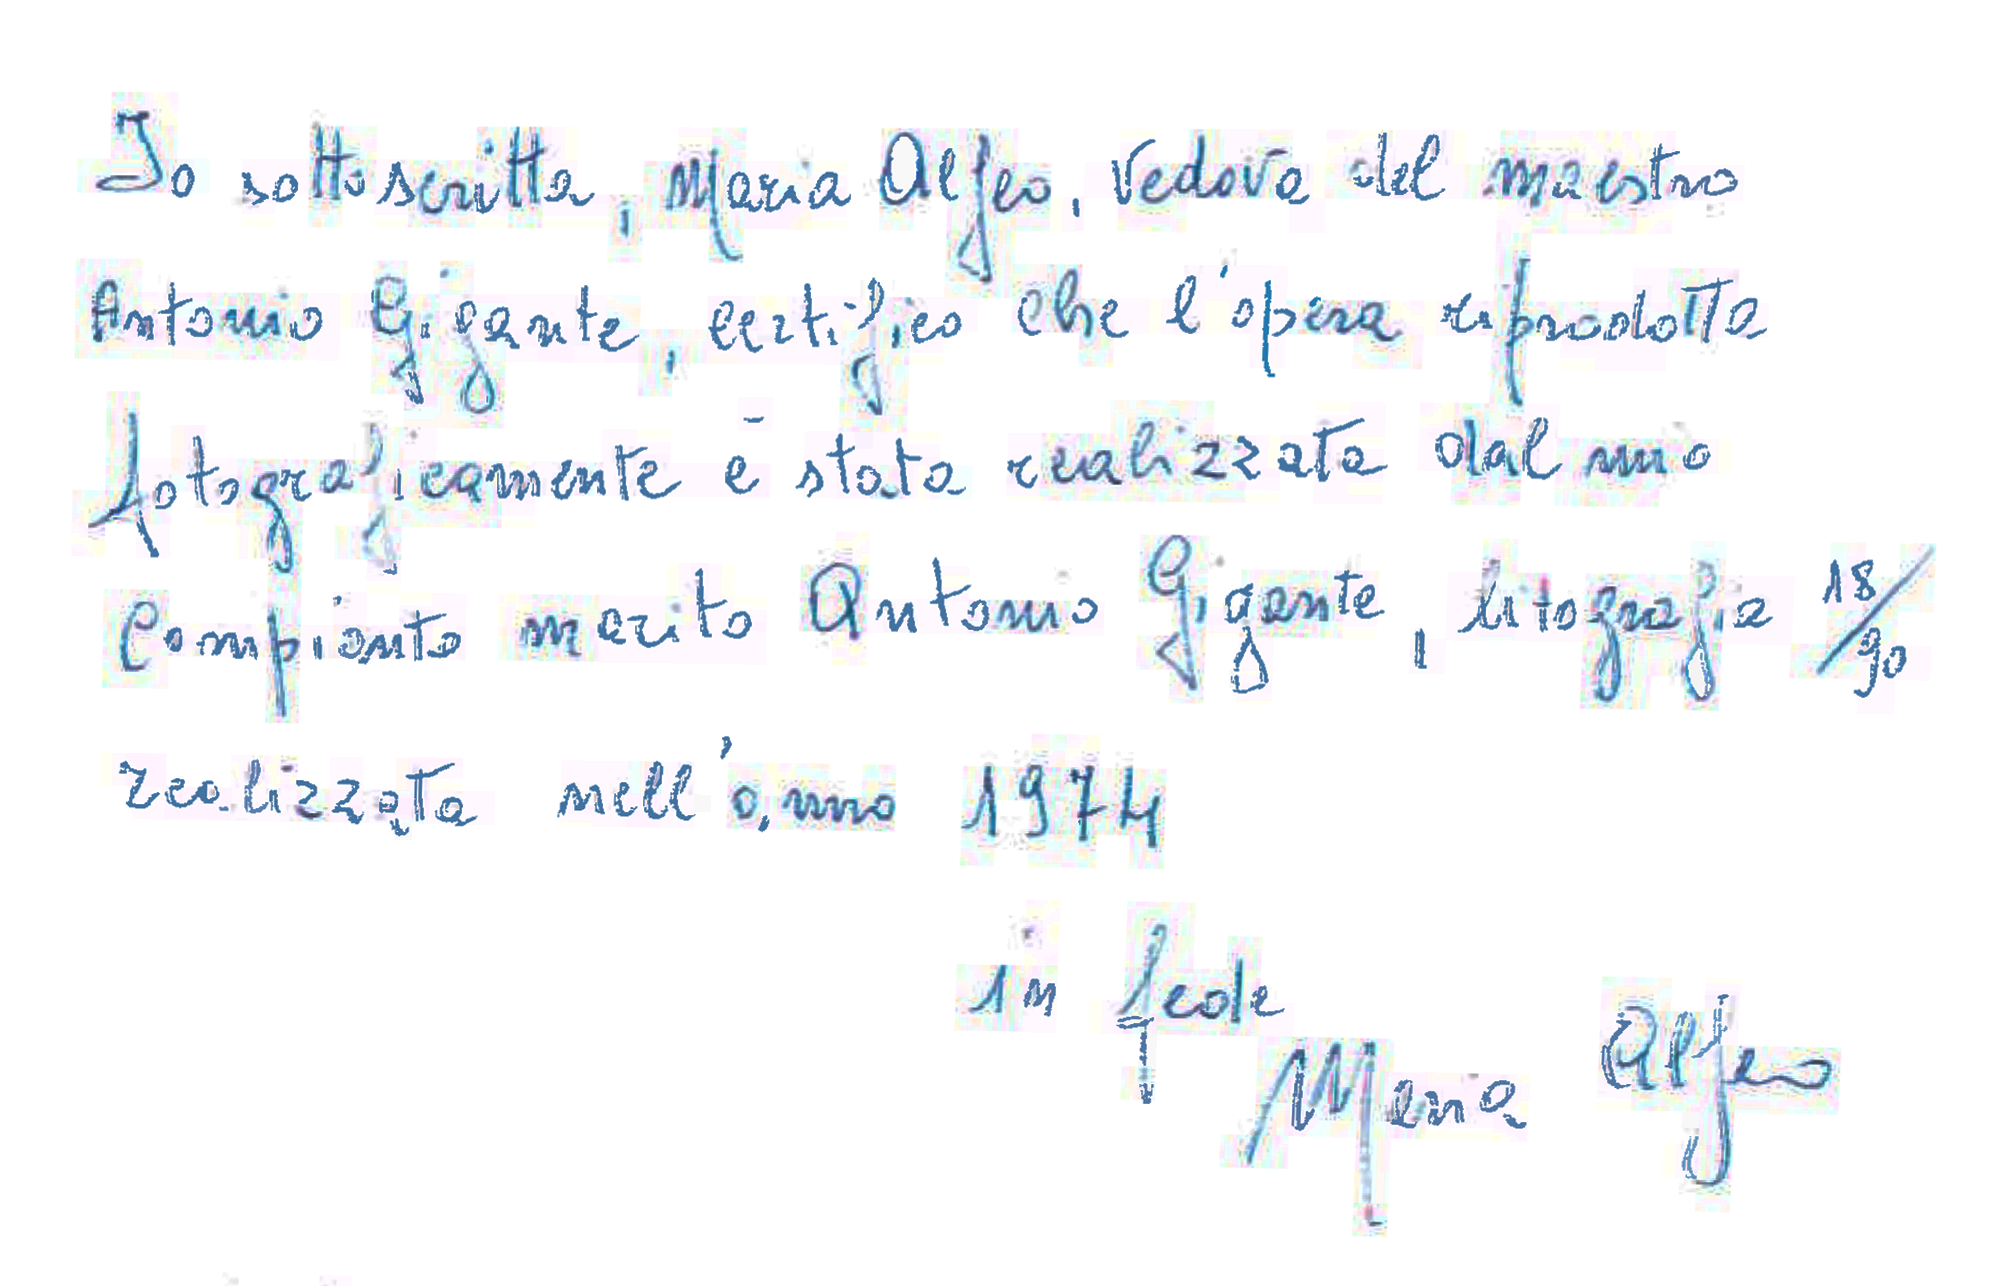 Io sottoscritta, Maria Alfeo, vedova del maestro
Antonio Gigante, certifico che l'opera riprodotta
fotograficamente è stata realizzata dal mio
Compianto marito Antonio Gigante, litografia 18/90
realizzata nell'anno 1974
in fede
Maria Alfeo